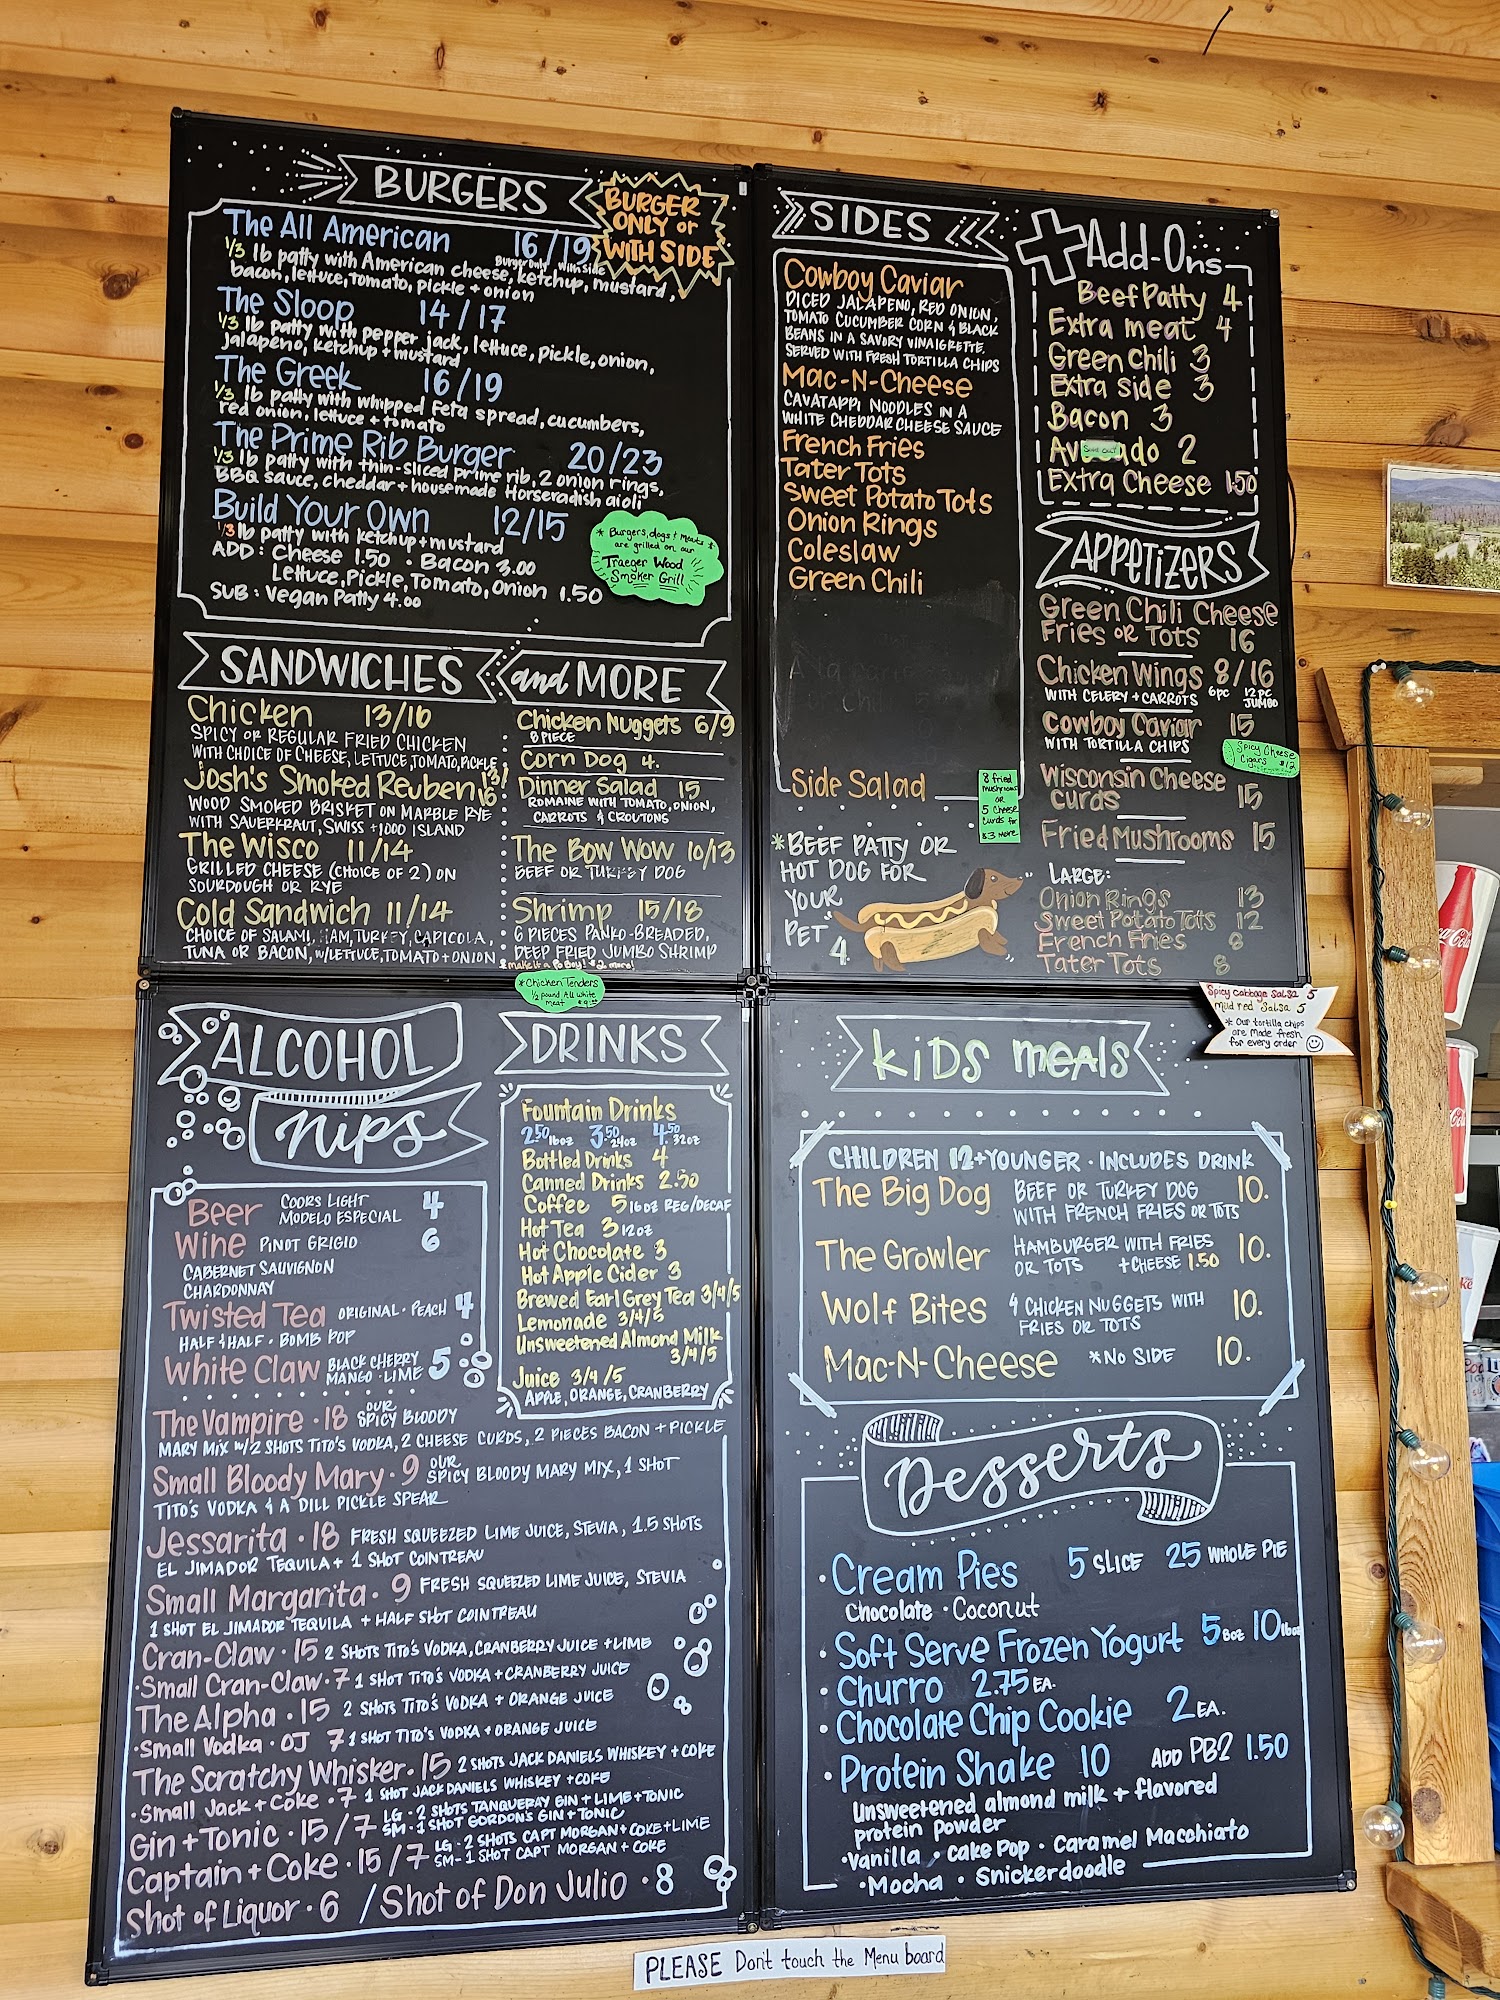 BURGERS
BURGER
ONLY or
WITH SIDE
The All American 16/19
Burger Only With Side
1/3 lb patty with American cheese, ketchup, mustard,
bacon, lettuce, tomato, pickle + onion
The Sloop 14/17
1/3 lb patty with pepper jack, lettuce, pickle, onion,
jalapeno, ketchup + mustard
The Greek 16/19
1/3 lb patty with whipped Feta spread, cucumbers,
red onion, lettuce + tomato
The Prime Rib Burger 20/23
1/3 lb patty with thin-sliced prime rib, 2 onion rings,
BBQ sauce, cheddar + housemade Horseradish aioli
Build Your Own 12/15
1/3 lb patty with ketchup + mustard
ADD: Cheese 1.50 · Bacon 3.00
Lettuce, Pickle, Tomato, Onion 1.50
SUB: Vegan Patty 4.00
* Burgers, dogs + Meats *
are grilled on our
Traeger Wood
Smoker Grill
SANDWICHES
Chicken 13/16
SPICY OR REGULAR FRIED CHICKEN
WITH CHOICE OF CHEESE, LETTUCE, TOMATO, PICKLE
Josh's Smoked Reuben 13/16
WOOD SMOKED BRISKET ON MARBLE RYE
WITH SAUERKRAUT, SWISS + 1000 ISLAND
The Wisco 11/14
GRILLED CHEESE (CHOICE OF 2) ON
SOURDOUGH OR RYE
Cold Sandwich 11/14
CHOICE OF SALAMI, HAM, TURKEY, CAPICOLA,
TUNA OR BACON, W/LETTUCE, TOMATO + ONION
and MORE
Chicken Nuggets 6/9
8 PIECE
Corn Dog 4.
Dinner Salad 15
ROMAINE WITH TOMATO, ONION,
CARROTS & CROUTONS
The Bow Wow 10/13
BEEF OR TURKEY DOG
Shrimp 15/18
6 PIECES PANKO-BREADED,
DEEP FRIED JUMBO SHRIMP
* make it a Po Boy! $2 more!
* Chicken Tenders
1/2 pound All White
meat
SIDES
Cowboy Caviar
DICED JALAPENO, RED ONION,
TOMATO CUCUMBER CORN & BLACK
BEANS IN A SAVORY VINAIGRETTE.
SERVED WITH FRESH TORTILLA CHIPS
Mac-N-Cheese
CAVATAPPI NOODLES IN A
WHITE CHEDDAR CHEESE SAUCE
French Fries
Tater Tots
Sweet Potato Tots
Onion Rings
Coleslaw
Green Chili
Side Salad
8 fried
mushrooms
OR
5 Cheese
Curds for
$3 more
*BEEF PATTY OR
HOT DOG FOR
YOUR
PET
4.
+ Add-Ons
Beef Patty 4
Extra meat 4
Green Chili 3
Extra side 3
Bacon 3
Avocado 2
Sold Out
Extra Cheese 1.50
APPETIZERS
Green Chili Cheese
Fries OR Tots 16
Chicken Wings 8/16
WITH CELERY + CARROTS 6pc 12pc
JUMBO
Cowboy Caviar 15
WITH TORTILLA CHIPS
Spicy Cheese
Cigars $12
Wisconsin Cheese
Curds 15
Fried Mushrooms 15
LARGE:
Onion Rings 13
Sweet Potato Tots 12
French Fries 8
Tater Tots 8
Spicy Cabbage Salsa 5
Mild red Salsa 5
* Our tortilla chips
are made fresh
for every order
ALCOHOL
nips
Beer COORS LIGHT 4
MODELO ESPECIAL
Wine PINOT GRIGIO 6
CABERNET SAUVIGNON
CHARDONNAY
Twisted Tea ORIGINAL · PEACH 4
HALF & HALF · BOMB POP
White Claw BLACK CHERRY 5
MANGO · LIME
The Vampire · 18 OUR SPICY BLOODY
MARY MIX W/2 SHOTS TITO'S VODKA, 2 CHEESE CURDS, 2 PIECES BACON + PICKLE
Small Bloody Mary · 9 OUR SPICY BLOODY MARY MIX, 1 SHOT
TITO'S VODKA & A DILL PICKLE SPEAR
Jessarita · 18 FRESH SQUEEZED LIME JUICE, STEVIA, 1.5 SHOTS
EL JIMADOR TEQUILA + 1 SHOT COINTREAU
Small Margarita · 9 FRESH SQUEEZED LIME JUICE, STEVIA
1 SHOT EL JIMADOR TEQUILA + HALF SHOT COINTREAU
Cran-Claw · 15 2 SHOTS TITO'S VODKA, CRANBERRY JUICE + LIME
·Small Cran-Claw · 7 1 SHOT TITO'S VODKA + CRANBERRY JUICE
The Alpha · 15 2 SHOTS TITO'S VODKA + ORANGE JUICE
·Small Vodka · OJ 7 1 SHOT TITO'S VODKA + ORANGE JUICE
The Scratchy Whisker · 15 2 SHOTS JACK DANIELS WHISKEY + COKE
·Small Jack + Coke · 7 1 SHOT JACK DANIELS WHISKEY + COKE
Gin + Tonic · 15/7 LG - 2 SHOTS TANQUERAY GIN + LIME + TONIC
SM - 1 SHOT GORDON'S GIN + TONIC
Captain + Coke · 15/7 LG - 2 SHOTS CAPT MORGAN + COKE + LIME
SM - 1 SHOT CAPT MORGAN + COKE
Shot of Liquor · 6 / Shot of Don Julio · 8
DRINKS
Fountain Drinks
2.50 16oz 3.50 24oz 4.50 32oz
Bottled Drinks 4
Canned Drinks 2.50
Coffee 5 16oz REG/DECAF
Hot Tea 3 12oz
Hot Chocolate 3
Hot Apple Cider 3
Brewed Earl Grey Tea 3/4/5
Lemonade 3/4/5
Unsweetened Almond Milk
3/4/5
Juice 3/4/5
APPLE, ORANGE, CRANBERRY
KIDS MEALS
CHILDREN 12 + YOUNGER · INCLUDES DRINK
The Big Dog BEEF OR TURKEY DOG 10.
WITH FRENCH FRIES OR TOTS
The Growler HAMBURGER WITH FRIES 10.
OR TOTS +CHEESE 1.50
Wolf Bites 4 CHICKEN NUGGETS WITH 10.
FRIES OR TOTS
Mac-N-Cheese *NO SIDE 10.
Desserts
·Cream Pies 5 SLICE 25 WHOLE PIE
Chocolate · Coconut
·Soft Serve Frozen Yogurt 5 8oz 10 16oz
·Churro 2.75 EA.
·Chocolate Chip Cookie 2 EA.
·Protein Shake 10 ADD PB2 1.50
unsweetened almond milk + flavored
protein powder
·Vanilla · Cake Pop · Caramel Macchiato
·Mocha · Snickerdoodle
PLEASE Don't touch the Menu board